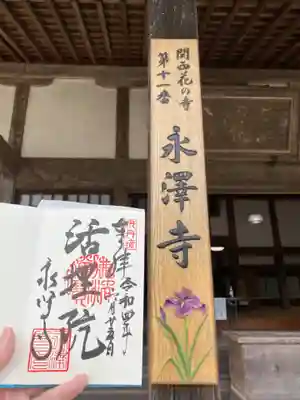 関西花の寺
第十一番
永澤寺
奉拝
令和四年
活埋院
永澤寺